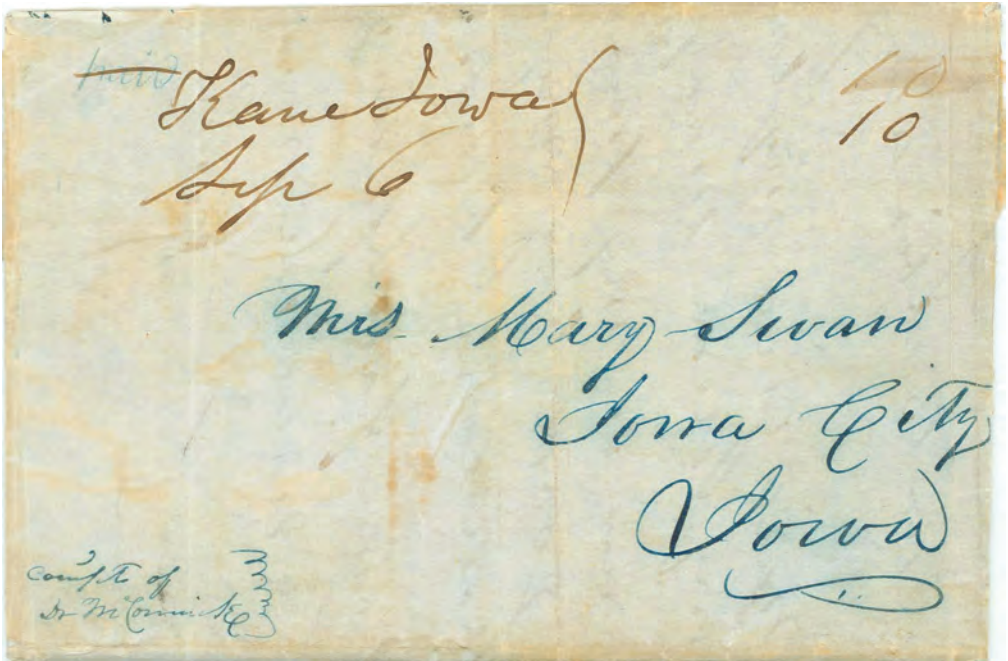 Kane Iowa
Sep 6
10
10
Mrs. Mary Swan
Iowa City
Iowa
Compts of
Dr McCormick